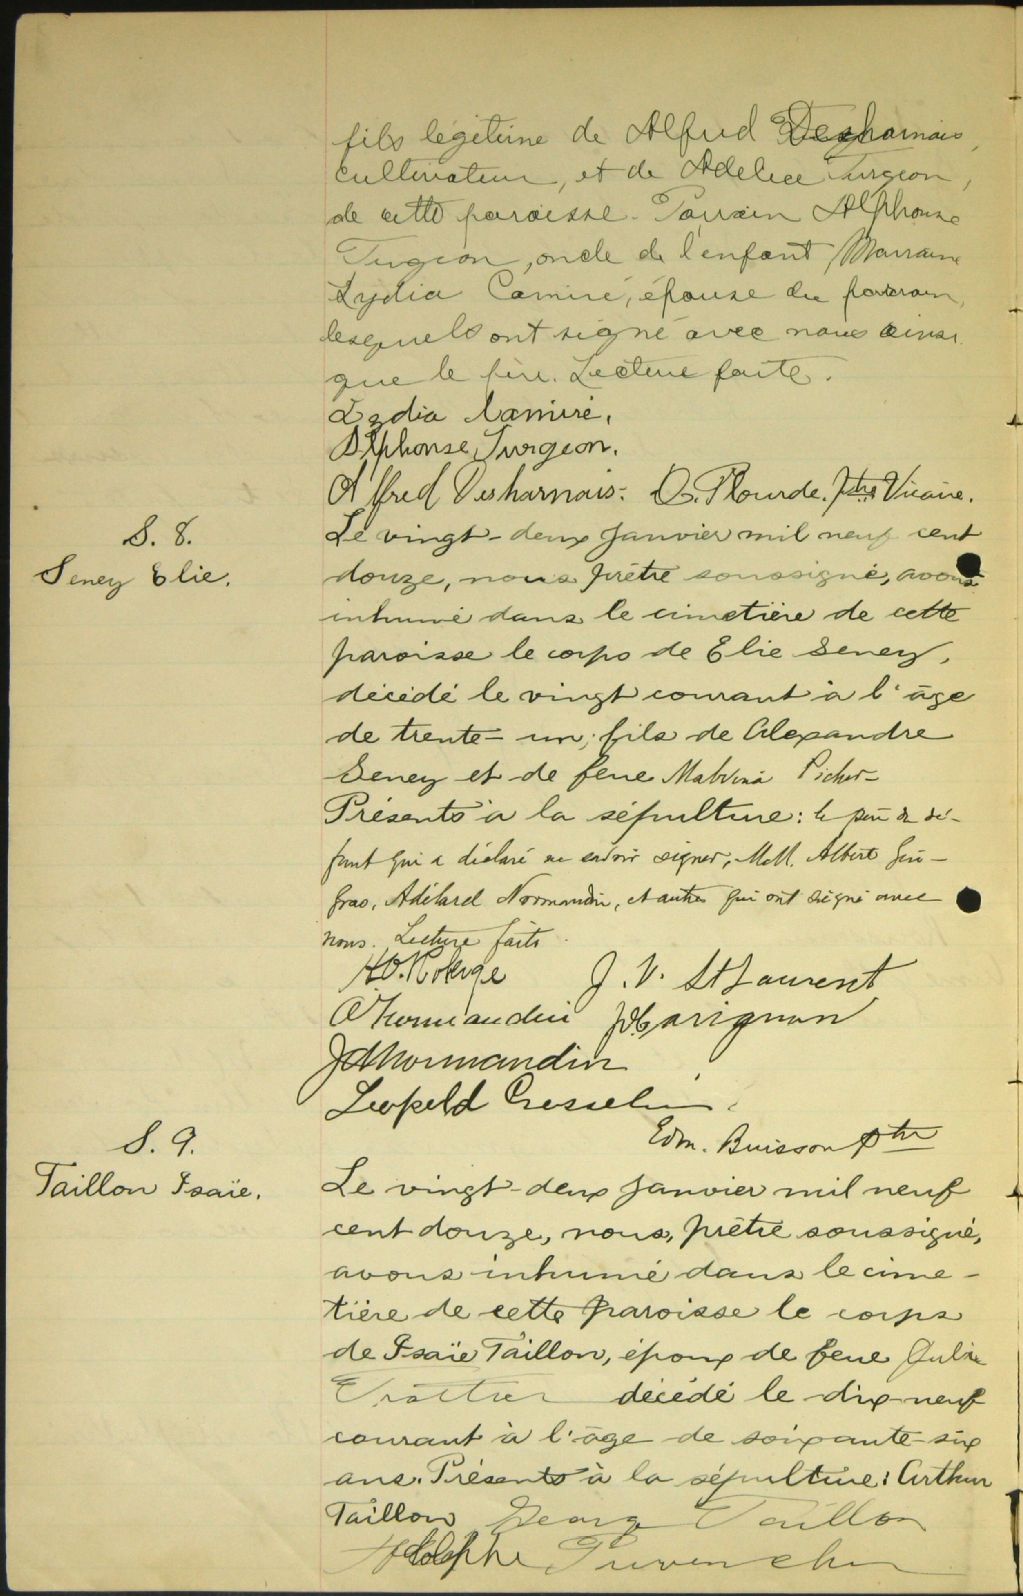 fils légitime de Alfred Desharnais,
cultivateur, et de Adelice Turgeon,
de cette paroisse. Parrain Alphonse
Turgeon, oncle de l'enfant, Marraine
Lydia Camiré, épouse du parrain,
lesquels ont signé avec nous ainsi
que le père. Lecture faite.
Lydia Camiré.
Alphonse Turgeon.
Alfred Desharnais. O. Plourde. Ptre Vicaire.
S. 8.
Seney Elie.
Le vingt-deux Janvier mil neuf cent
douze, nous prêtre soussigné, avons
inhumé dans le cimetière de cette
paroisse le corps de Elie Seney,
décédé le vingt courant à l'âge
de trente-un, fils de Alexandre
Seney et de feue Malvina Picher
Présents à la sépulture: le père du dé-
funt qui a déclaré ne savoir signer, MM. Albert Gin-
gras, Adélard Normandin, et autres qui ont signé avec
nous. Lecture faite.
J. V. St Laurent
Normandin
J A Normandin
Léopold
Edm. Buisson Ptre
S. 9.
Taillon Isaïe.
Le vingt-deux Janvier mil neuf
cent douze, nous, prêtre soussigné,
avons inhumé dans le cime-
tière de cette paroisse le corps
de Isaïe Taillon, époux de feue Julie
Trottier décédé le dix-neuf
courant à l'âge de soixante-six
ans. Présents à la sépulture: Arthur
Taillon George Taillon
Adolphe Provencher